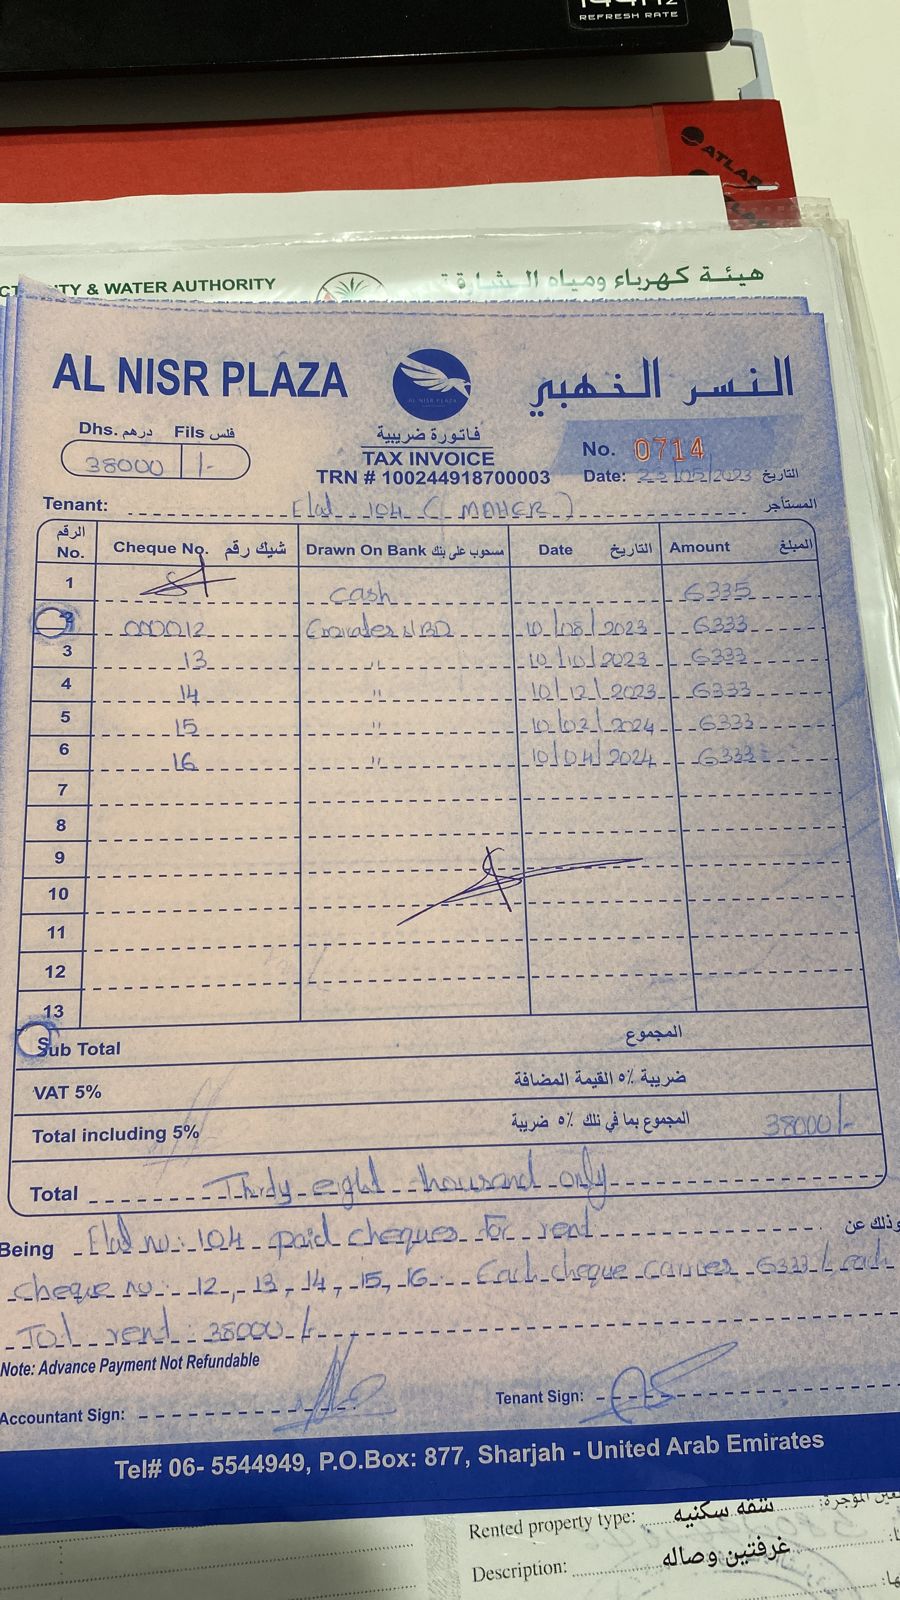 144Hz
REFRESH RATE
ATLAS
& WATER AUTHORITY
هيئة كهرباء ومياه الشارقة
AL NISR PLAZA
AL NISR PLAZA
النسر الذهبي
Dhs. درهم Fils فلس
38000 /-
فاتورة ضريبية
TAX INVOICE
TRN # 100244918700003
No. 0714
Date: 23/05/2023 التاريخ
Tenant: Flat 104 ( MAHER ) المستأجر
الرقم No. Cheque No. شيك رقم Drawn On Bank مسحوب على بنك Date التاريخ Amount المبلغ
1 cash 6335
2 000012 Emirates NBD 10/08/2023 6333
3 13 " 10/10/2023 6333
4 14 " 10/12/2023 6333
5 15 " 10/02/2024 6333
6 16 " 10/04/2024 6333
7
8
9
10
11
12
13
Sub Total المجموع
VAT 5% ضريبة ٥٪ القيمة المضافة
Total including 5% المجموع بما في ذلك ٥٪ ضريبة 38000/-
Total Thirty eight thousand only
Being Flat no: 104 paid cheques for rent وذلك عن
cheque no: 12, 13, 14, 15, 16 Each cheque carries 6333/- each
Total rent: 38000/-
Note: Advance Payment Not Refundable
Accountant Sign: Tenant Sign:
Tel# 06- 5544949, P.O.Box: 877, Sharjah - United Arab Emirates
Rented property type: شقه سكنيه
Description: غرفتين وصاله